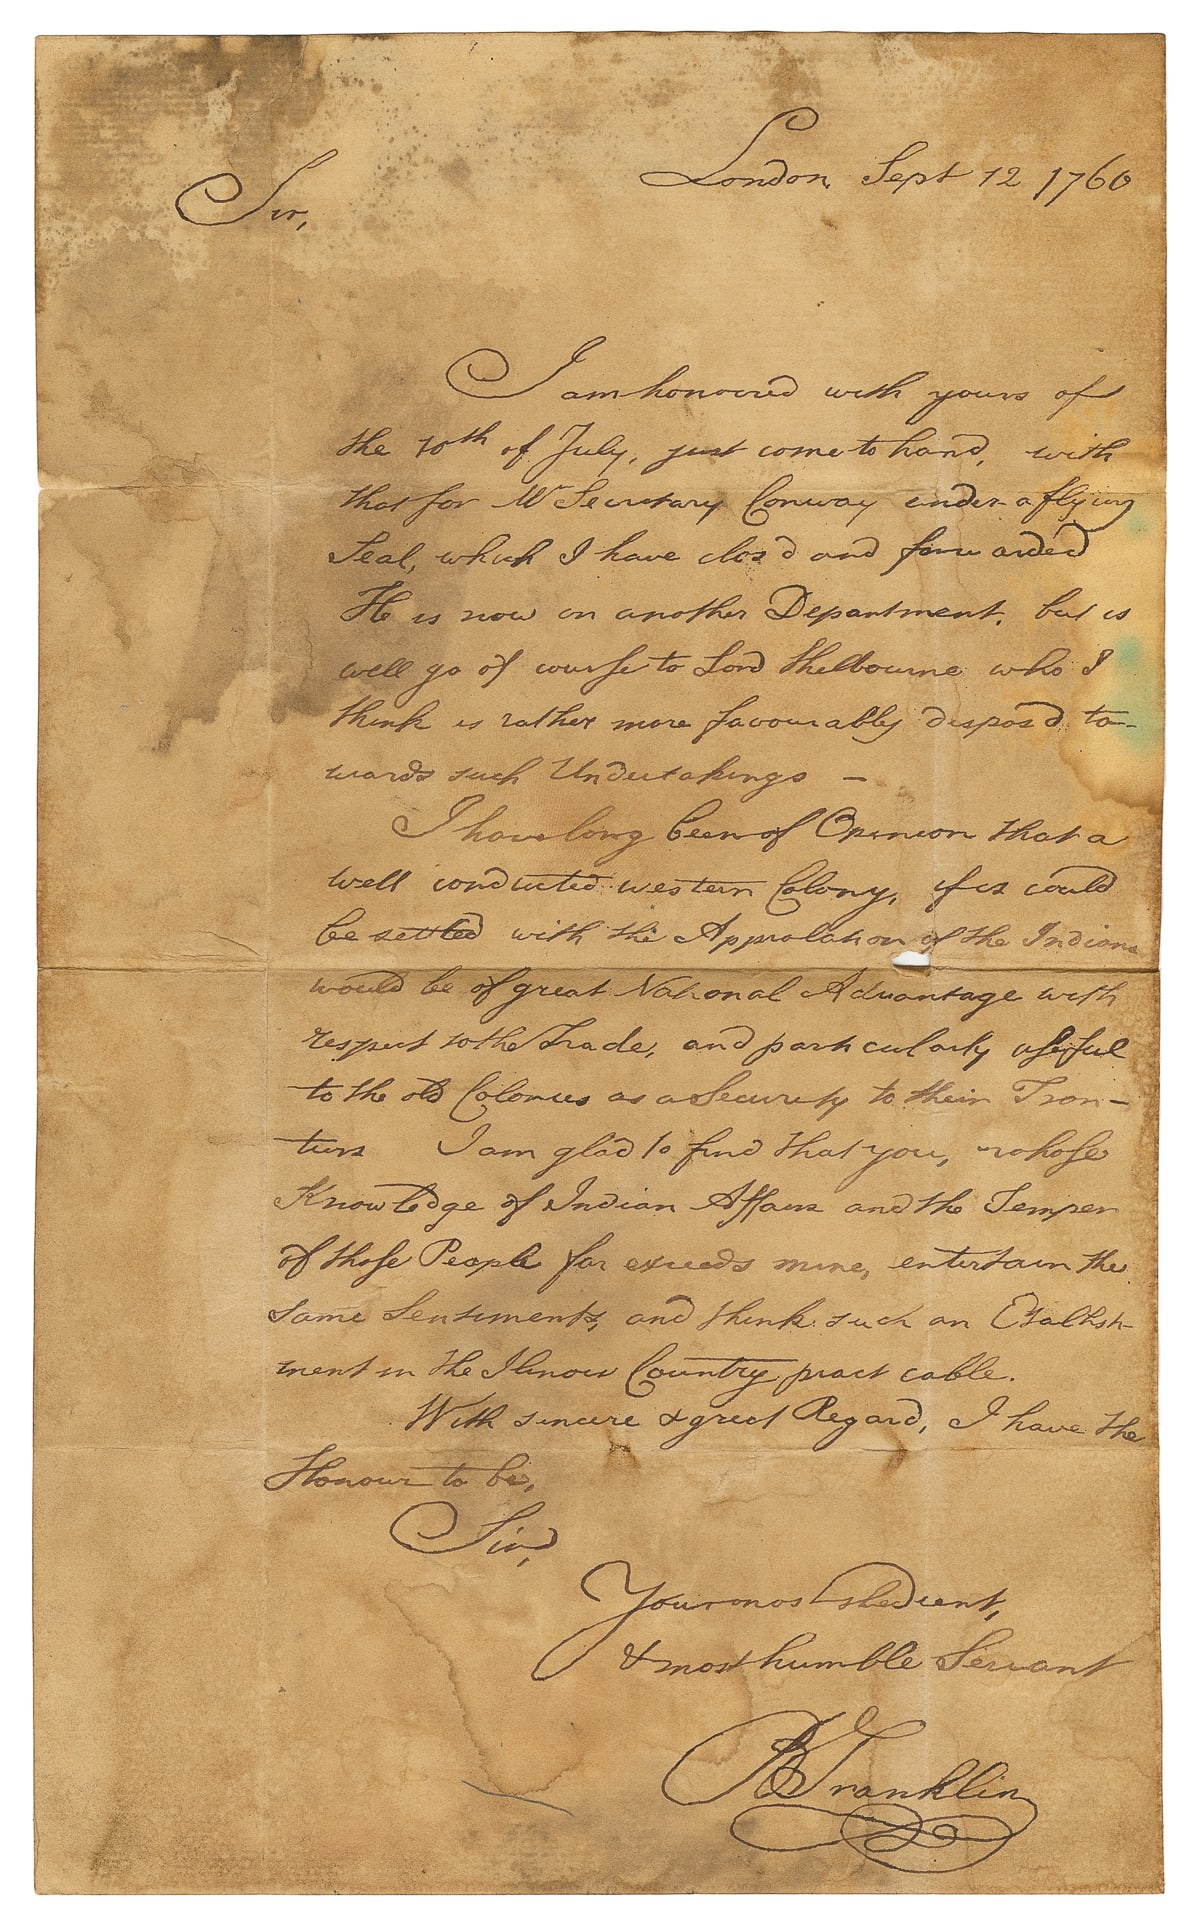 London, Sept 12 1760
Sir,
I am honoured with yours of
the 10th of July, just come to hand, with
that for Mr Secretary Conway under a flying
Seal, which I have clos'd and forwarded
He is now in another Department, but is
will go of course to Lord Shelbourne who I
think is rather more favourably dispos'd to-
wards such Undertakings —
I have long been of Opinion that a
well conducted western Colony, if it could
be settled with the Approbation of the Indians
would be of great National Advantage with
respect to the Trade, and particularly useful
to the old Colonies as a Security to their Fron-
tiers I am glad to find that you, whose
Knowledge of Indian Affairs and the Temper
of those People far exceeds mine, entertain the
same Sentiments, and think such an Establish-
ment in the Ilinois Country practicable.
With sincere & great Regard, I have the
Honour to be,
Sir,
Your most obedient,
& most humble Servant
B Franklin